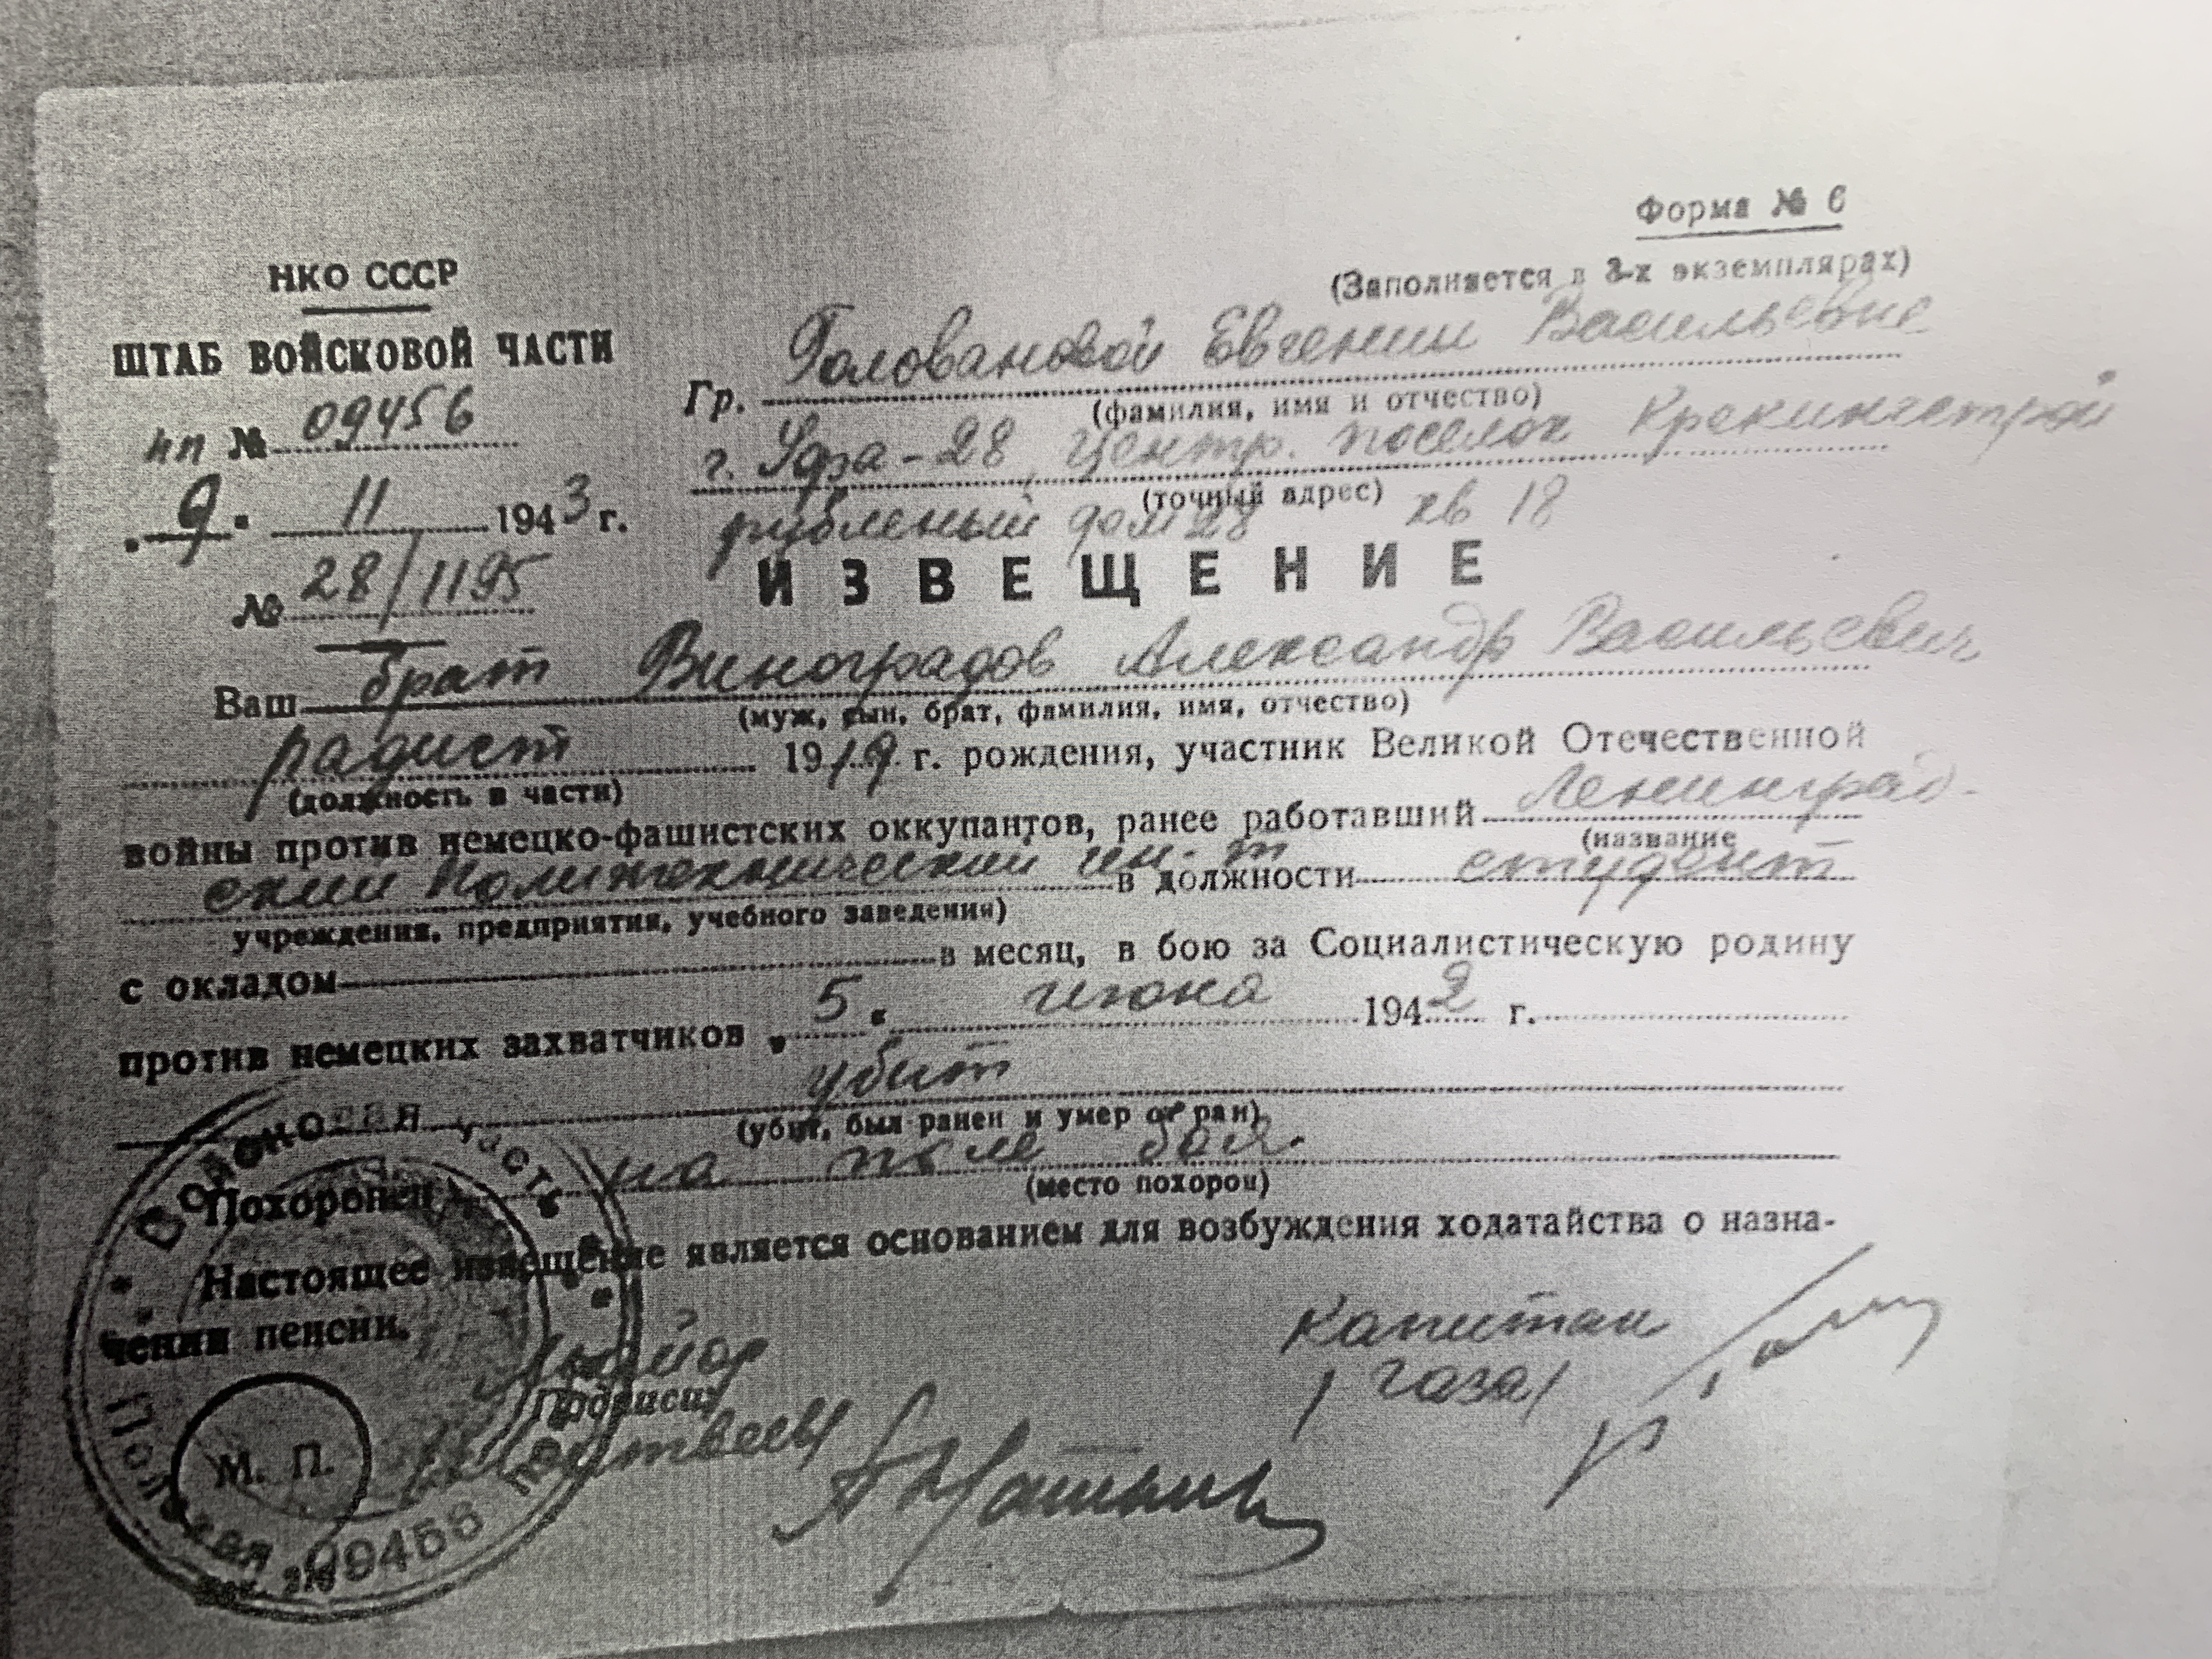 Форма № 6
(Заполняется в 3-х экземплярах)
НКО СССР
ШТАБ ВОЙСКОВОЙ ЧАСТИ
пп № 09456
„ 9 " 11 1943 г.
№ 28/1195
Гр. Головановой Евгении Васильевне
(фамилия, имя и отчество)
г. Уфа-28, Центр. поселок Крекингстрой
(точный адрес)
рубленый дом 28 кв 18
ИЗВЕЩЕНИЕ
Ваш брат Виноградов Александр Васильевич
(муж, сын, брат, фамилия, имя, отчество)
радист 1919 г. рождения, участник Великой Отечественной
(должность в части)
войны против немецко-фашистских оккупантов, ранее работавший Ленинград-
(название
ский Политехнический ин-т в должности студент
учреждения, предприятия, учебного заведения)
с окладом в месяц, в бою за Социалистическую родину
против немецких захватчиков „ 5 " июня 1942 г.
убит
(убит, был ранен и умер от ран)
Похоронен на поле боя.
(место похорон)
Настоящее извещение является основанием для возбуждения ходатайства о назна-
чении пенсии.
Майор
Подписи:
Капитан
/Газа/
М. П.
Войсковая часть
Полевая почта 09456